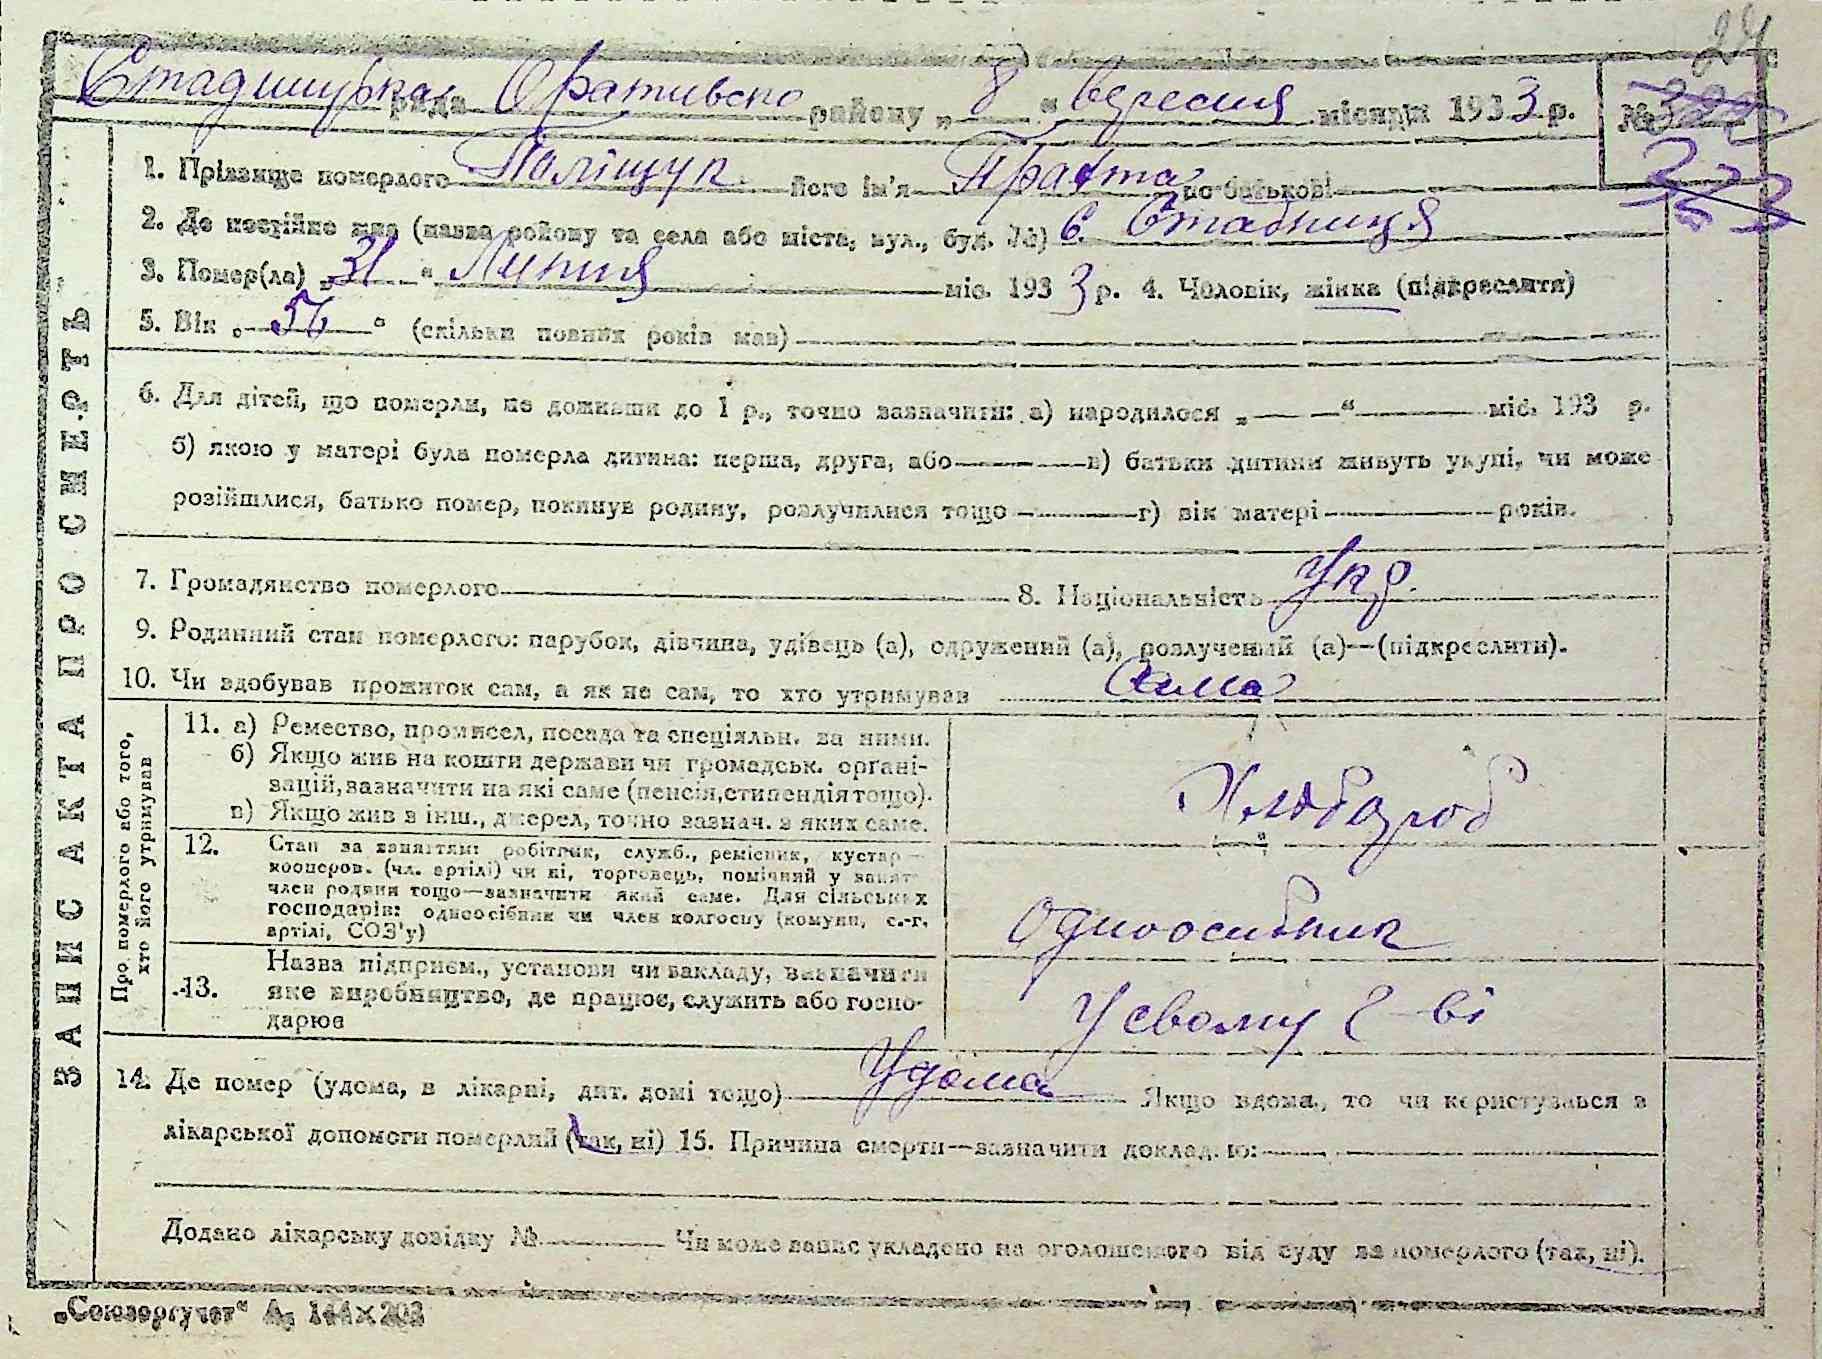 24
Стадницька рада Оратівсько району „ 8 “ вересня місяця 1933 р. №
223
1. Прізвище померлого Поліщук його ім'я по батькові
2. Де постійно жив (назва району та села або міста, вул., буд. №) с. Стадниця
3. Помер(ла) „ 31 “ Липня міс. 1933 р. 4. Чоловік, жінка (підкреслити)
5. Вік „ 56 “ (скільки повних років мав)
6. Для дітей, що померли, не доживши до 1 р., точно зазначити: а) народилося „ “ міс. 193 р.
б) якою у матері була померла дитина: перша, друга, або в) батьки дитини живуть укупі, чи може
розійшлися, батько помер, покинув родину, розлучилися тощо г) вік матері років.
7. Громадянство померлого 8. Національність Укр.
9. Родинний стан померлого: парубок, дівчина, удівець (а), одружений (а), розлучений (а)—(підкреслити).
10. Чи здобував прожиток сам, а як не сам, то хто утримував Сама
ЗАПИС АКТА ПРО СМЕРТЬ
Про померлого або того,
хто його утримував
11. а) Ремество, промисел, посада та спеціяльн. за ними.
б) Якщо жив на кошти держави чи громадськ. органі-
зацій, зазначити на які саме (пенсія, стипендія тощо).
в) Якщо жив в інш., джерел, точно зазнач. з яких саме.
Хлібороб
12. Стан за заняттям: робітник, служб., ремісник, кустар —
кооперов. (чл. артілі) чи ні, торговець, помічний у занят.
член родини тощо—зазначити який саме. Для сільських
господарів: одноосібник чи член колгоспу (комуни, с.-г.
артілі, СОЗ'у)
Одноосибник
13. Назва підприєм., установи чи закладу, зазначити
яке виробництво, де працює, служить або госпо-
дарює
У свому г-ві
14. Де помер (удома, в лікарні, дит. домі тощо) Удома Якщо вдома, то чи користувався з
лікарської допомоги померлий (так, ні) 15. Причина смерти—зазначити докладно:
Додано лікарську довідку № Чи може запис укладено на оголошеного від суду за померлого (так, ні).
„Союзоргучет“ А₅ 144×203